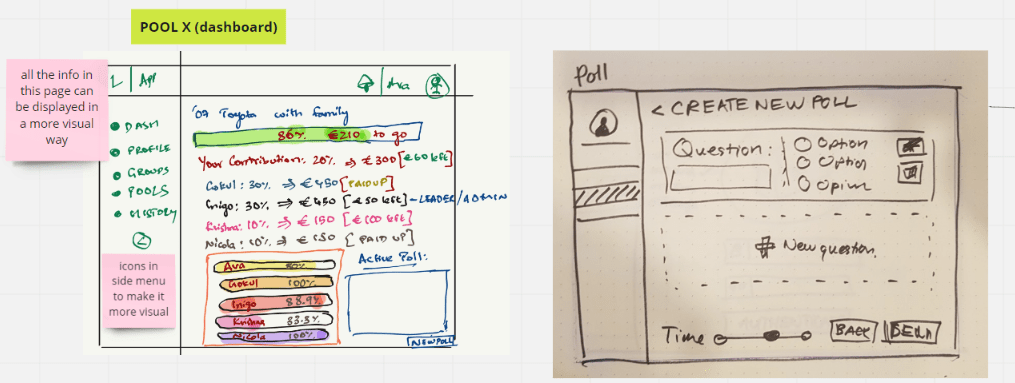 POOL X (dashboard)
all the info in
this page can
be displayed in
a more visual
way
App
Ava
'09 Toyota with family
86% €210 to go
Your Contribution: 20% ⇒ €300 [€60 left]
Gokul: 30% ⇒ €450 [PAID UP]
Inigo: 30% ⇒ €450 [€50 left] - LEADER/ADMIN
Krishna: 10% ⇒ €150 [€100 left]
Nicola: 10% ⇒ €150 [PAID UP]
DASH
PROFILE
GROUPS
POOLS
HISTORY
2
icons in
side menu
to make it
more visual
Ava 80%
Gokul 100%
Inigo 88.9%
Krishna 33.3%
Nicola 100%
Active Poll:
NEW POLL
Poll
< CREATE NEW POLL
Question:
Option
Option
Option
New question
Time
BACK